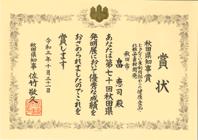 賞状
秋田県知事賞
畠 恵司 殿
あなたは第七十回秋田県
発明展において優秀な成績を
おさめられましたのでこれを
賞します
令和三年十月三十一日
秋田県知事 佐竹敬久